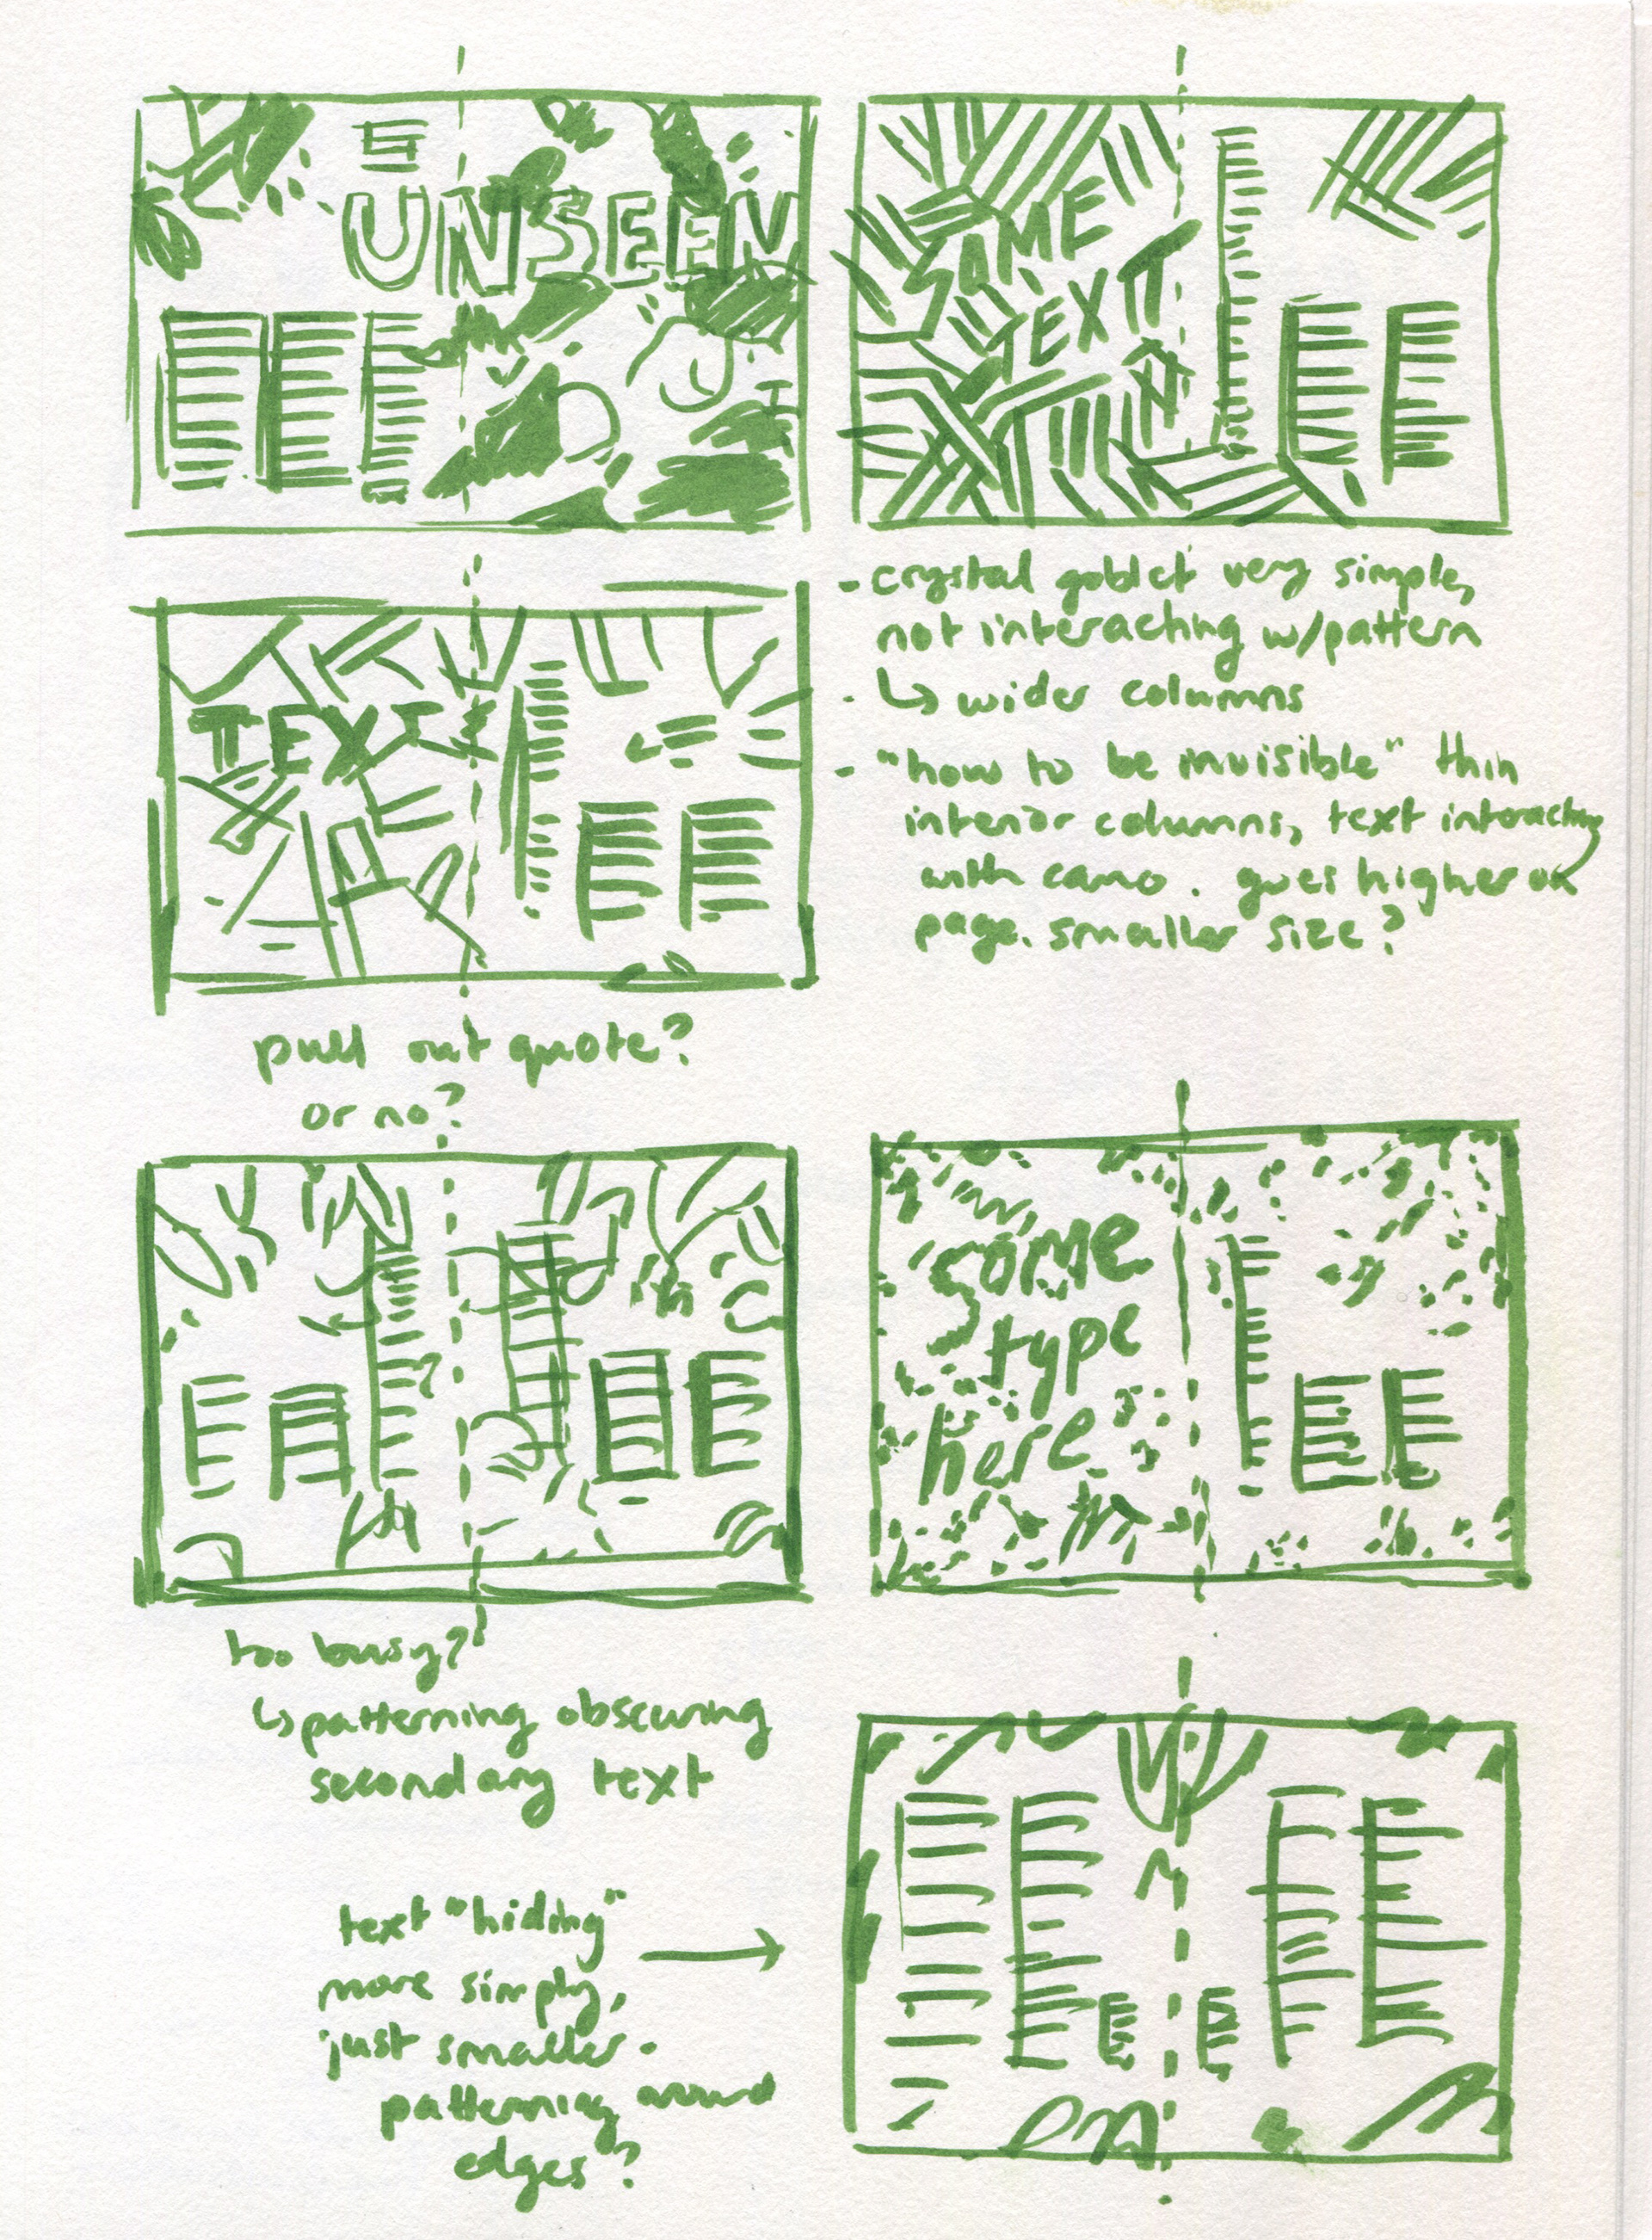 UNSEEN
SOME
TEXT
- crystal goblet very simple,
not interacting w/pattern
- ↳ wider columns
- "how to be invisible" thin
interior columns, text interacting
with camo. goes higher on
page. smaller size?
TEXT
pull out quote?
or no?
some
type
here
too busy?
↳ patterning obscuring
secondary text
text "hiding"
more simply,
just smaller.
patterning around
edges?